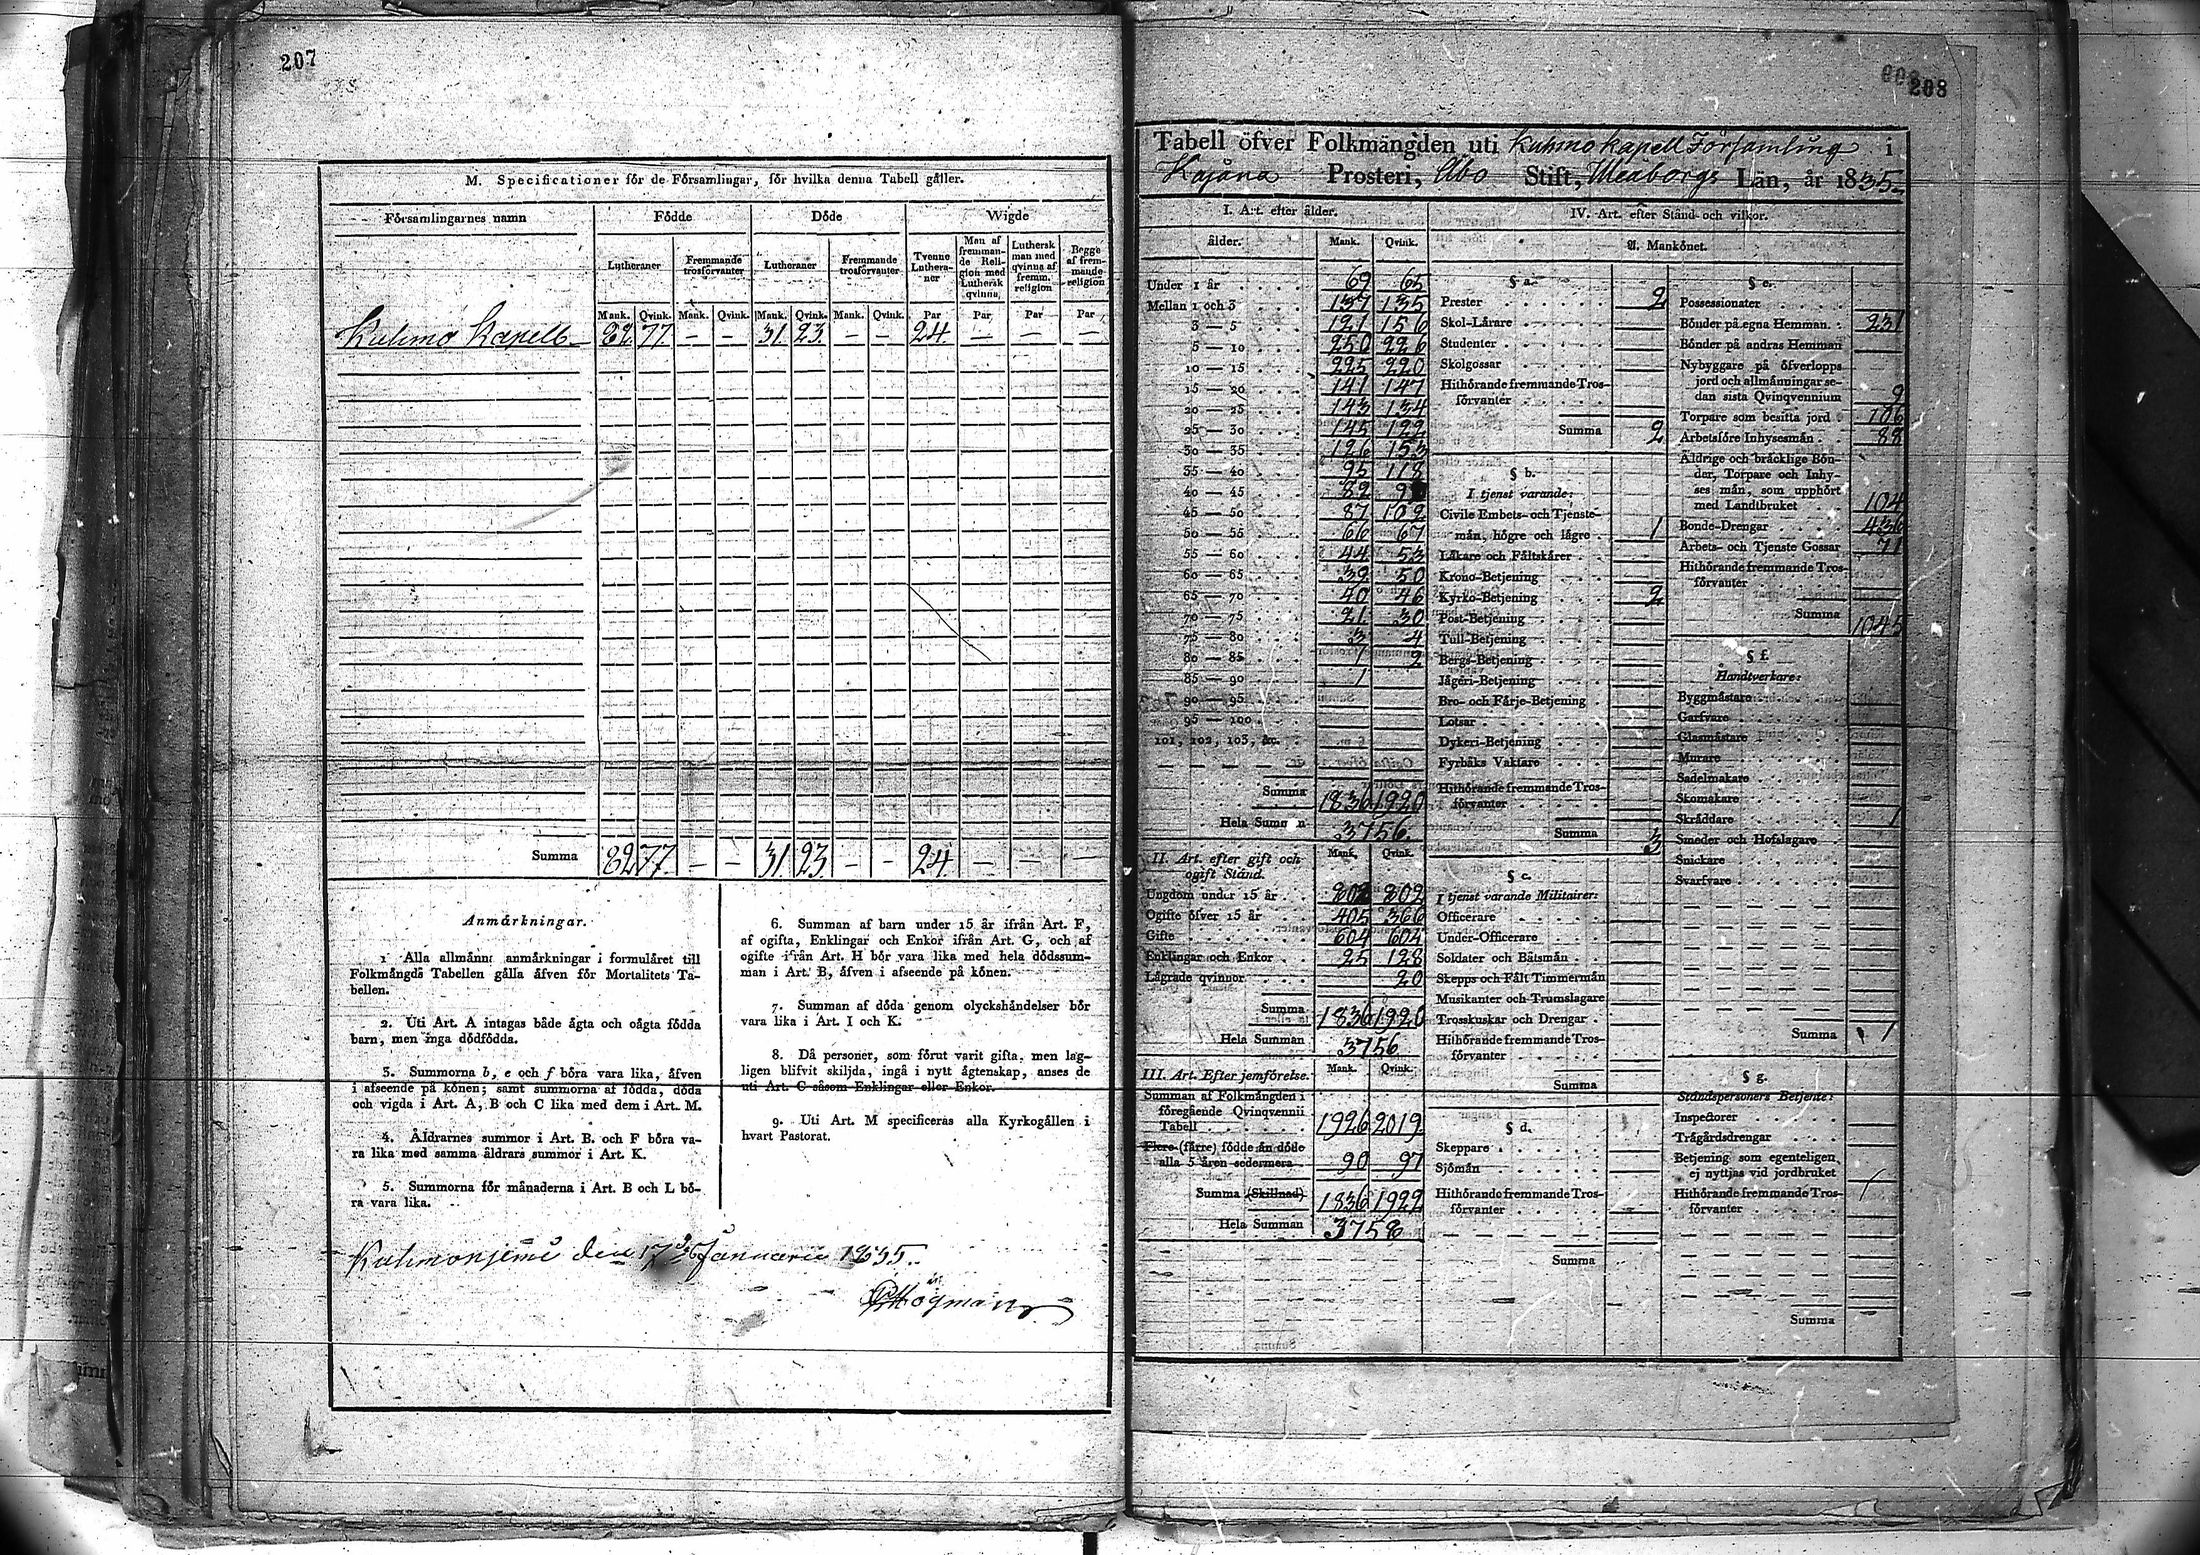 207
M. Specificationer för de Församlingar, för hvilka denna Tabell gäller.
Församlingarnes namn Födde Döde Wigde
Lutheraner Fremmande trosförvanter Lutheraner Fremmande trosförvanter Tvenne Lutheraner Man af fremmande Religion med Luthersk qvinna Luthersk man med qvinna af fremm. religion Begge af fremmande religion
Mank. Qvink. Mank. Qvink. Mank. Qvink. Mank. Qvink. Par Par Par Par
Kuhmo Kapell 82 77 — — 31 23 — — 24 — — —
Summa 82 77 — — 31 23 — — 24 — — —
Anmärkningar.
1 Alla allmänna anmärkningar i formuläret till
Folkmängds Tabellen gälla äfven för Mortalitets Ta-
bellen.
2. Uti Art. A intagas både ägta och oägta födda
barn, men inga dödfödda.
3. Summorna b, e och f böra vara lika, äfven
i afseende på könen; samt summorna af födda, döda
och vigda i Art. A, B och C lika med dem i Art. M.
4. Åldrarnes summor i Art. B. och F böra va-
ra lika med samma åldrars summor i Art. K.
5. Summorna för månaderna i Art. B och L bö-
ra vara lika.
6. Summan af barn under 15 år ifrån Art. F,
af ogifta, Enklingar och Enkor ifrån Art. G, och af
ogifte ifrån Art. H bör vara lika med hela dödssum-
man i Art. B, äfven i afseende på könen.
7. Summan af döda genom olyckshändelser bör
vara lika i Art. I och K.
8. Då personer, som förut varit gifta, men lag-
ligen blifvit skiljda, ingå i nytt ägtenskap, anses de
uti Art. C såsom Enklingar eller Enkor.
9. Uti Art. M specificeras alla Kyrkogällen i
hvart Pastorat.
den 17 Januarii 1835.
Högman
208
Tabell öfver Folkmängden uti Kuhmo Kapell Församling i
Kajana Prosteri, Åbo Stift, Uleåborgs Län, år 1835
I. Art. efter ålder.
ålder. Mank. Qvink.
Under 1 år 69 65
Mellan 1 och 3 137 135
3 — 5 121 156
5 — 10 250 226
10 — 15 225 220
15 — 20 141 147
20 — 25 143 134
25 — 30 145 122
30 — 35 126 153
35 — 40 95 118
40 — 45 82
45 — 50 87 102
50 — 55 66 67
55 — 60 44 53
60 — 65 39 50
65 — 70 40 46
70 — 75 21 30
75 — 80 3 4
80 — 85 1 2
85 — 90 1
90 — 95
95 — 100
101, 102, 103, &c.
Summa 1836 1920
Hela Summan 3756
II. Art. efter gift och ogift Stånd. Mank. Qvink.
Ungdom under 15 år 802 802
Ogifte öfver 15 år 405 366
Gifte 604 604
Enklingar och Enkor 25 128
Lägrade qvinnor 20
Summa 1836 1920
Hela Summan 3756
III. Art. Efter jemförelse. Mank. Qvink.
Summan af Folkmängden i
föregående Qvinqvennii
Tabell 1926 2019
Flere (färre) födde än döde
alla 5 åren sedermera 90 97
Summa (Skillnad) 1836 1922
Hela Summan 3758
IV. Art. efter Stånd och vilkor.
A. Mankönet.
§ a.
Prester 2
Skol-Lärare
Studenter
Skolgossar
Hithörande fremmande Tros-
förvanter
Summa 2
§ b.
I tjenst varande:
Civile Embets- och Tjenste-
män, högre och lägre 1
Läkare och Fältskärer
Krono-Betjening
Kyrko-Betjening 2
Post-Betjening
Tull-Betjening
Bergs-Betjening
Jägeri-Betjening
Bro- och Färje-Betjening
Lotsar
Dykeri-Betjening
Fyrbåks Vaktare
Hithörande fremmande Tros-
förvanter
Summa 3
§ c.
I tjenst varande Militairer:
Officerare
Under-Officerare
Soldater och Båtsmän
Skepps och Fält Timmermän
Musikanter och Trumslagare
Trosskuskar och Drengar
Hithörande fremmande Tros-
förvanter
Summa
§ d.
Skeppare
Sjömän
Hithörande fremmande Tros-
förvanter
Summa
§ e.
Possessionater
Bönder på egna Hemman 231
Bönder på andras Hemman
Nybyggare på öfverlopps
jord och allmänningar se-
dan sista Qvinqvennium 9
Torpare som besitta jord 106
Arbetsföre Inhysesmän 88
Äldrige och bräcklige Bön-
der, Torpare och Inhy-
ses män, som upphört
med Landtbruket 104
Bonde-Drengar 436
Arbets- och Tjenste Gossar 71
Hithörande fremmande Tros-
förvanter
Summa 1045
§ f.
Handtverkare:
Byggmästare
Garfvare
Glasmästare
Murare
Sadelmakare
Skomakare
Skräddare 1
Smeder och Hofslagare
Snickare
Svarfvare
Summa 1
§ g.
Ståndspersoners Betjente:
Inspectorer
Trägårdsdrengar
Betjening som egenteligen
ej nyttjas vid jordbruket
Hithörande fremmande Tros-
förvanter
Summa